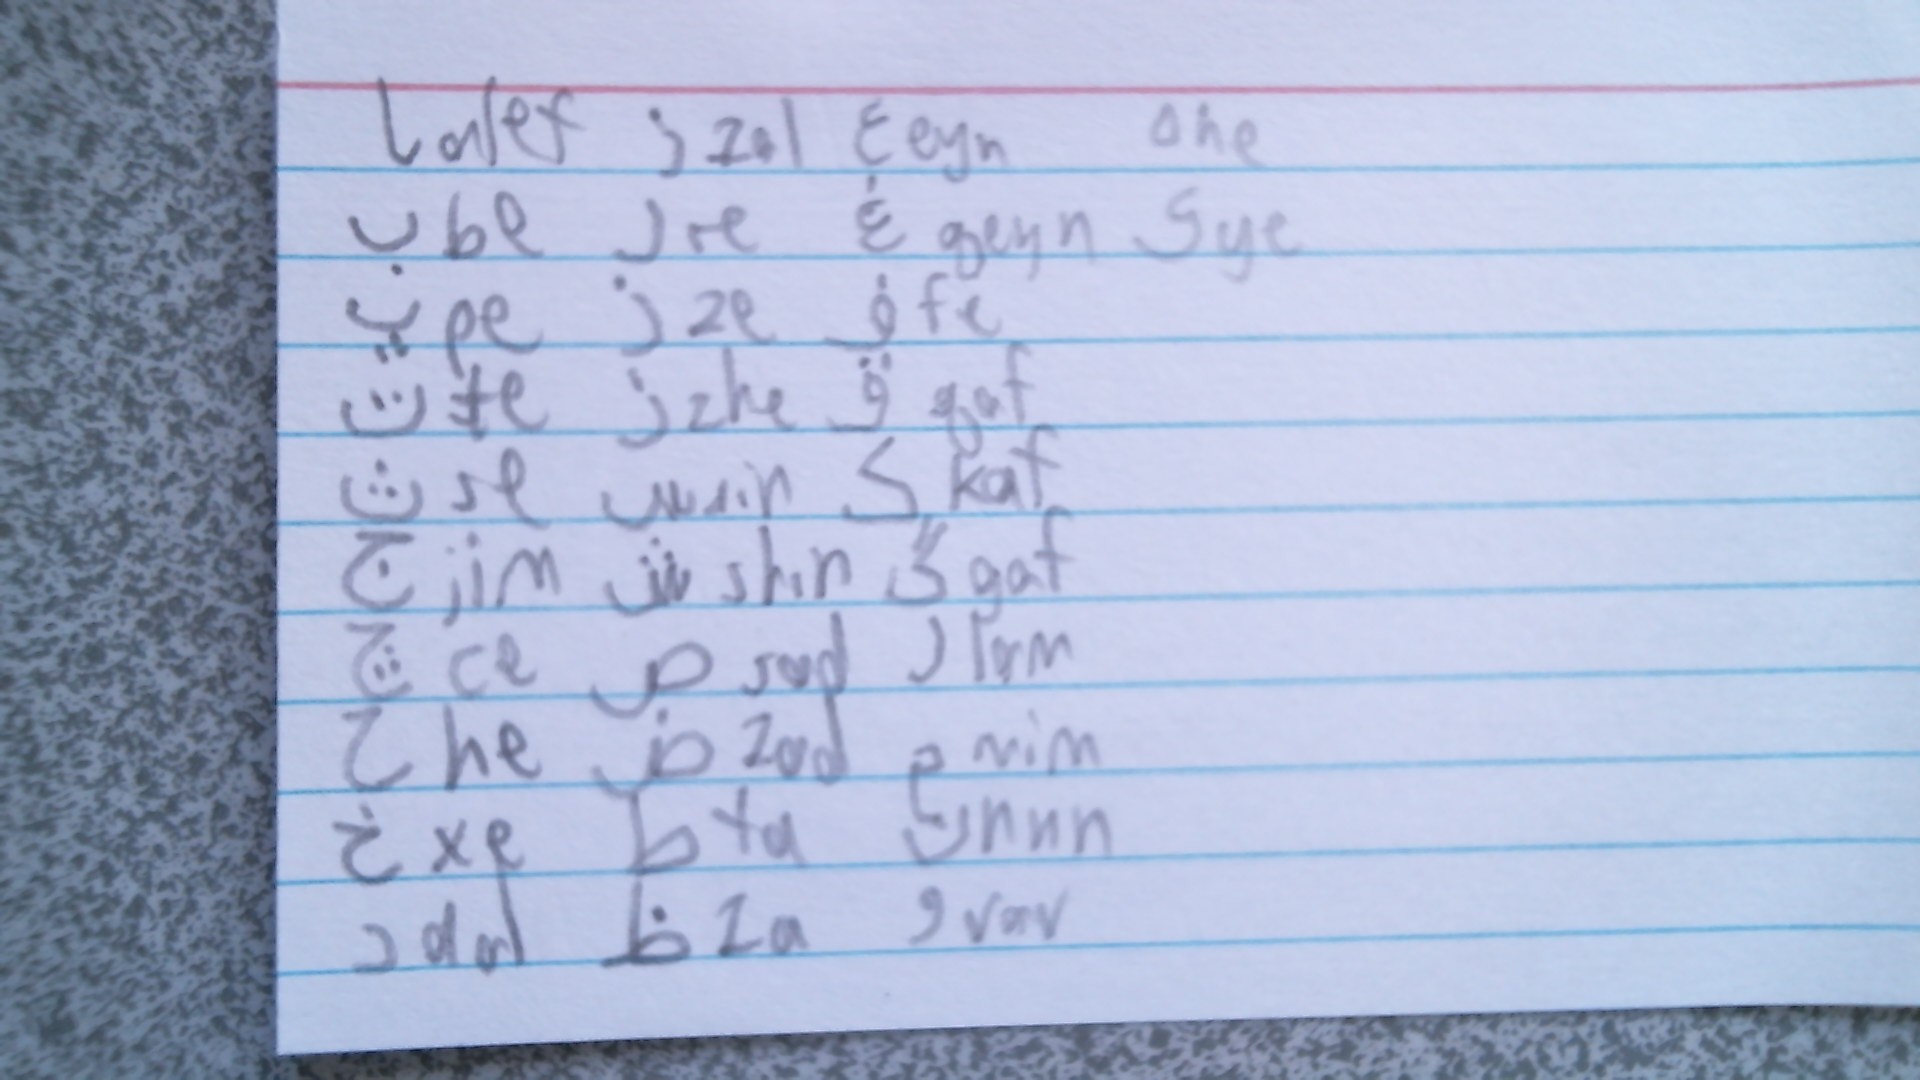 ا alef ذ zal ع eyn ه he
ب be ر re غ qeyn ی ye
پ pe ز ze ف fe
ت te ژ zhe ق qaf
ث se س sin ک kaf
ج jim ش shin گ gaf
چ ce ص sad ل lam
ح he ض zad م mim
خ xe ط ta ن nun
د dal ظ za و vav